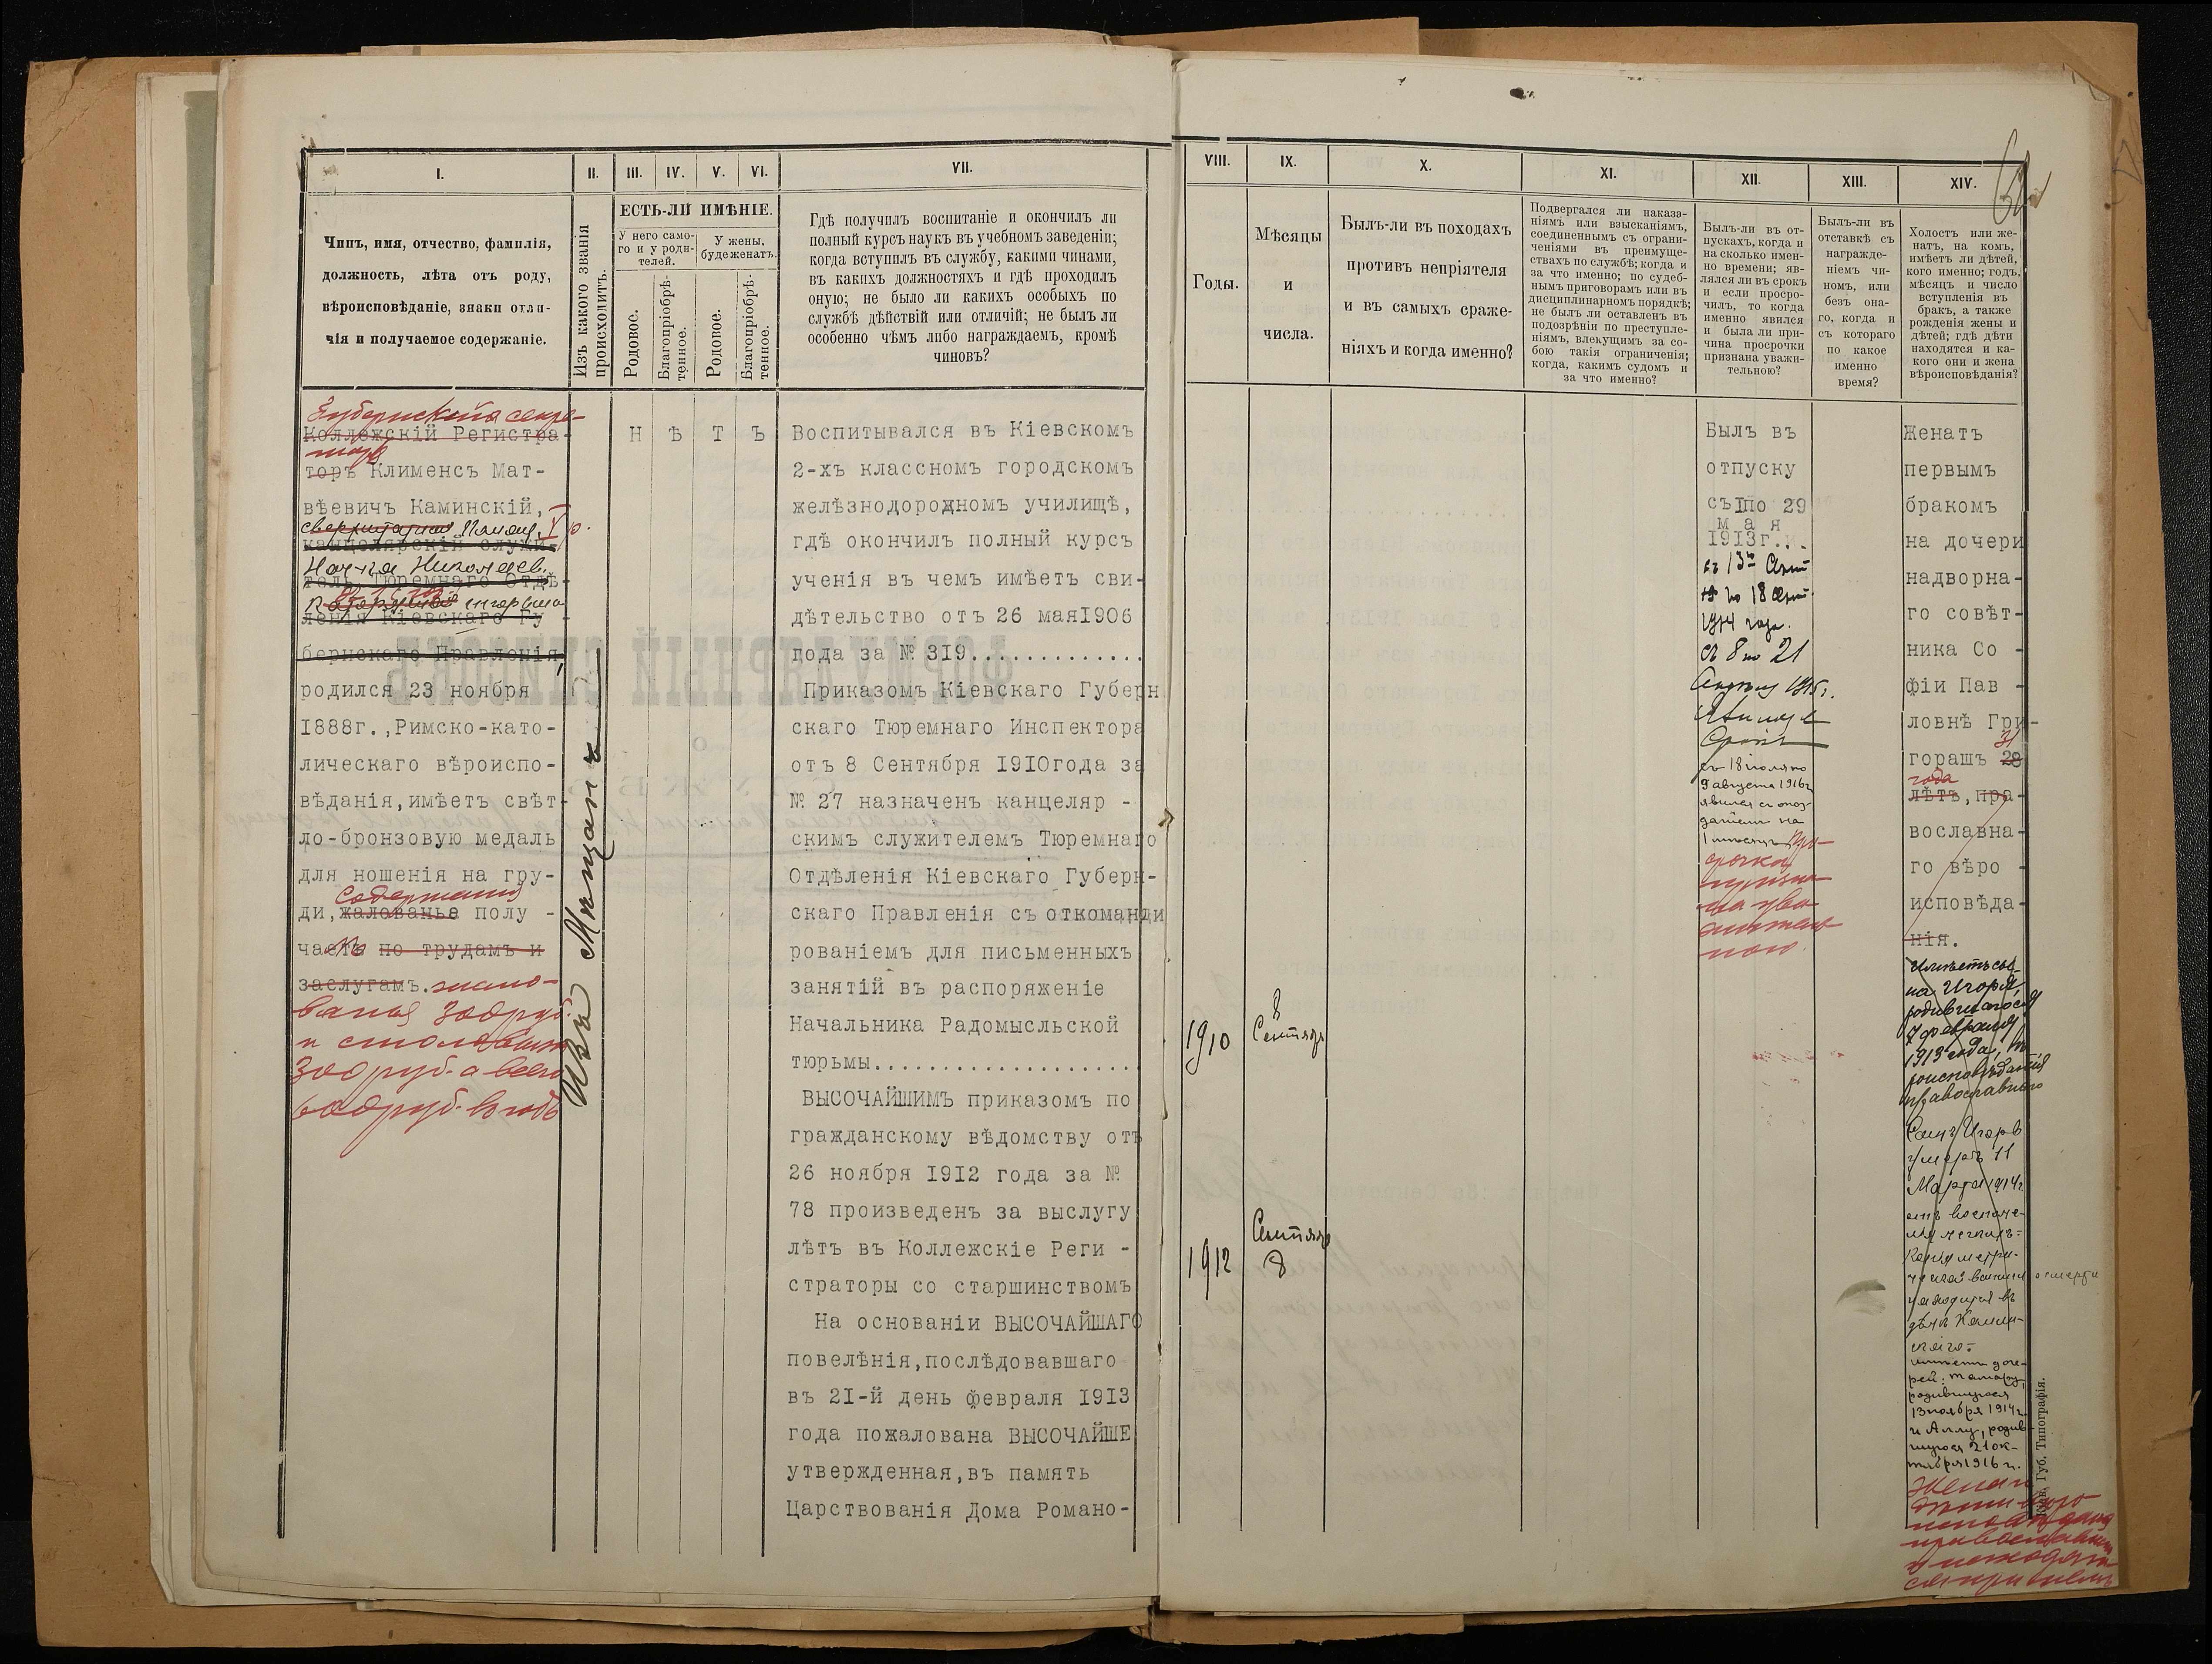 I.
II.
III.
IV.
V.
VI.
VII.
ЕСТЬ-ЛИ ИМѢНІЕ.
Чинъ, имя, отчество, фамилія,
должность, лѣта отъ роду,
вѣроисповѣданіе, знаки отли-
чія и получаемое содержаніе.
Изъ какого званія
происходитъ.
У него само-
го и у роди-
телей.
У жены,
буде женатъ.
Родовое.
Благопріобрѣ-
тенное.
Родовое.
Благопріобрѣ-
тенное.
Гдѣ получилъ воспитаніе и окончилъ ли
полный курсъ наукъ въ учебномъ заведеніи;
когда вступилъ въ службу, какими чинами,
въ какихъ должностяхъ и гдѣ проходилъ
оную; не было ли какихъ особыхъ по
службѣ дѣйствій или отличій; не былъ ли
особенно чѣмъ либо награждаемъ, кромѣ
чиновъ?
Губернскій секре-
Коллежскій Регистра-
таръ
торъ Клименсъ Мат-
вѣевичъ Каминскій,
канцелярскій служи-
тель Тюремнаго Отдѣ-
ленія Кіевскаго Гу-
бернскаго Правленія,
родился 23 ноября
1888г.,Римско-като-
лическаго вѣроиспо-
вѣданія,имѣетъ свѣт-
ло-бронзовую медаль
для ношенія на гру-
содержанія
ди,жалованье полу -
чаетъ по трудамъ и
заслугамъ. жало-
ванья 300 руб.
и столовыхъ
300 руб. а всего
600 руб. въ годъ
Изъ Мѣщанъ
Н Ѣ Т Ъ
Воспитывался въ Кіевскомъ
2-хъ классномъ городскомъ
желѣзнодорожномъ училищѣ,
гдѣ окончилъ полный курсъ
ученія въ чемъ имѣетъ сви-
дѣтельство отъ 26 мая1906
года за № 319..............
Приказомъ Кіевскаго Губерн
скаго Тюремнаго Инспектора
отъ 8 Сентября 1910года за
№ 27 назначенъ канцеляр -
скимъ служителемъ Тюремнаго
Отдѣленія Кіевскаго Губерн-
скаго Правленія съ откоманди
рованіемъ для письменныхъ
занятій въ распоряженіе
Начальника Радомысльской
тюрьмы.....................
ВЫСОЧАЙШИМЪ приказомъ по
гражданскому вѣдомству отъ
26 ноября 1912 года за №
78 произведенъ за выслугу
лѣтъ въ Коллежскіе Реги -
страторы со старшинствомъ
На основаніи ВЫСОЧАЙШАГО
повелѣнія,послѣдовавшаго
въ 21-й день февраля 1913
года пожалована ВЫСОЧАЙШЕ
утвержденная,въ память
Царствованія Дома Романо-
VIII.
IX.
X.
XI.
XII.
XIII.
XIV.
Годы.
Мѣсяцы
и
числа.
Былъ-ли въ походахъ
противъ непріятеля
и въ самыхъ сраже-
ніяхъ и когда именно?
Подвергался ли наказа-
ніямъ или взысканіямъ,
соединеннымъ съ ограни-
ченіями въ преимуще-
ствахъ по службѣ; когда и
за что именно; по судеб-
нымъ приговорамъ или въ
дисциплинарномъ порядкѣ;
не былъ ли оставленъ въ
подозрѣніи по преступле-
ніямъ, влекущимъ за со-
бою такія ограниченія;
когда, какимъ судомъ и
за что именно?
Былъ-ли въ от-
пускахъ, когда и
на сколько имен-
но времени; яв-
лялся ли въ срокъ
и если просро-
чилъ, то когда
именно явился
и была ли при-
чина просрочки
признана уважи-
тельною?
Былъ-ли въ
отставкѣ съ
награжде-
ніемъ чи-
номъ, или
безъ она-
го, когда и
съ котораго
по какое
именно
время?
Холостъ или же-
натъ, на комъ,
имѣетъ ли дѣтей,
кого именно; годъ,
мѣсяцъ и число
вступленія въ
бракъ, а также
рожденія жены и
дѣтей; гдѣ дѣти
находятся и ка-
кого они и жена
вѣроисповѣданія?
1910
8
Сентября
1912
Сентября
8
Былъ въ
отпуску
съ1по 29
м а я
1913г...
съ 13го Сент
по 18 Сент.
1914 года.
съ 8 по 21
Апрѣля 1915г.
съ 18 іюля по
9 августа 1916г
явился съ опоз-
даніемъ на
1 мѣсяцъ. Про-
срочка
призна-
на ува-
житель-
ною.
Женатъ
первымъ
бракомъ
на дочери
надворна-
го совѣт-
ника Со -
фіи Пав -
ловнѣ Гри-
31
горашъ 28
года
лѣтъ,пра-
вославна-
го вѣро -
исповѣда-
нія.
Имѣетъ сы-
на Игоря,
родившагося
7 февраля
1913 года, вѣ-
роисповѣданія
православнаго
Сынъ Игорь
умеръ 11
Марта 1914г
отъ воспале-
нія легкихъ=
имѣетъ доче-
рей: Тамару,
родившуюся
13 ноября 1914 г.
и Аллу, родив-
шуюся 21 ок-
тября 1916 г.
Жена и
дѣти вѣро-
исповѣданія
православнаго
и находят-
ся при немъ
Кіев. Губ. Типографія.